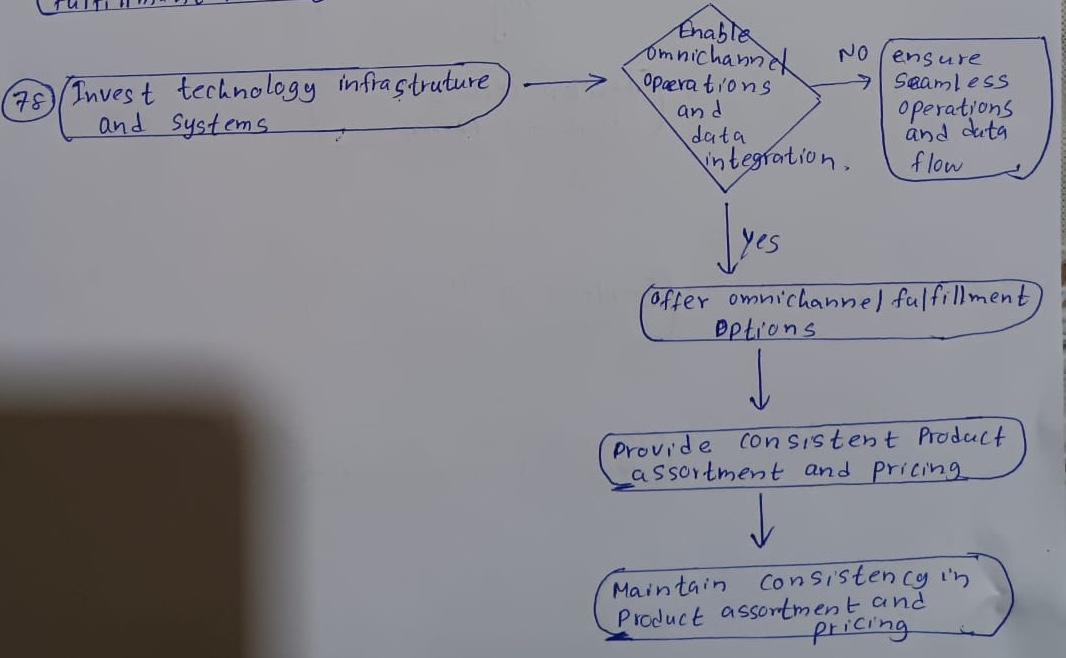 78
Invest technology infrastruture
and systems
Enable
omnichannel
operations
and
data
integration.
NO
ensure
Seamless
operations
and data
flow
Yes
Offer omnichannel fulfillment
Options
Provide consistent Product
assortment and pricing
Maintain consistency in
Product assortment and
pricing